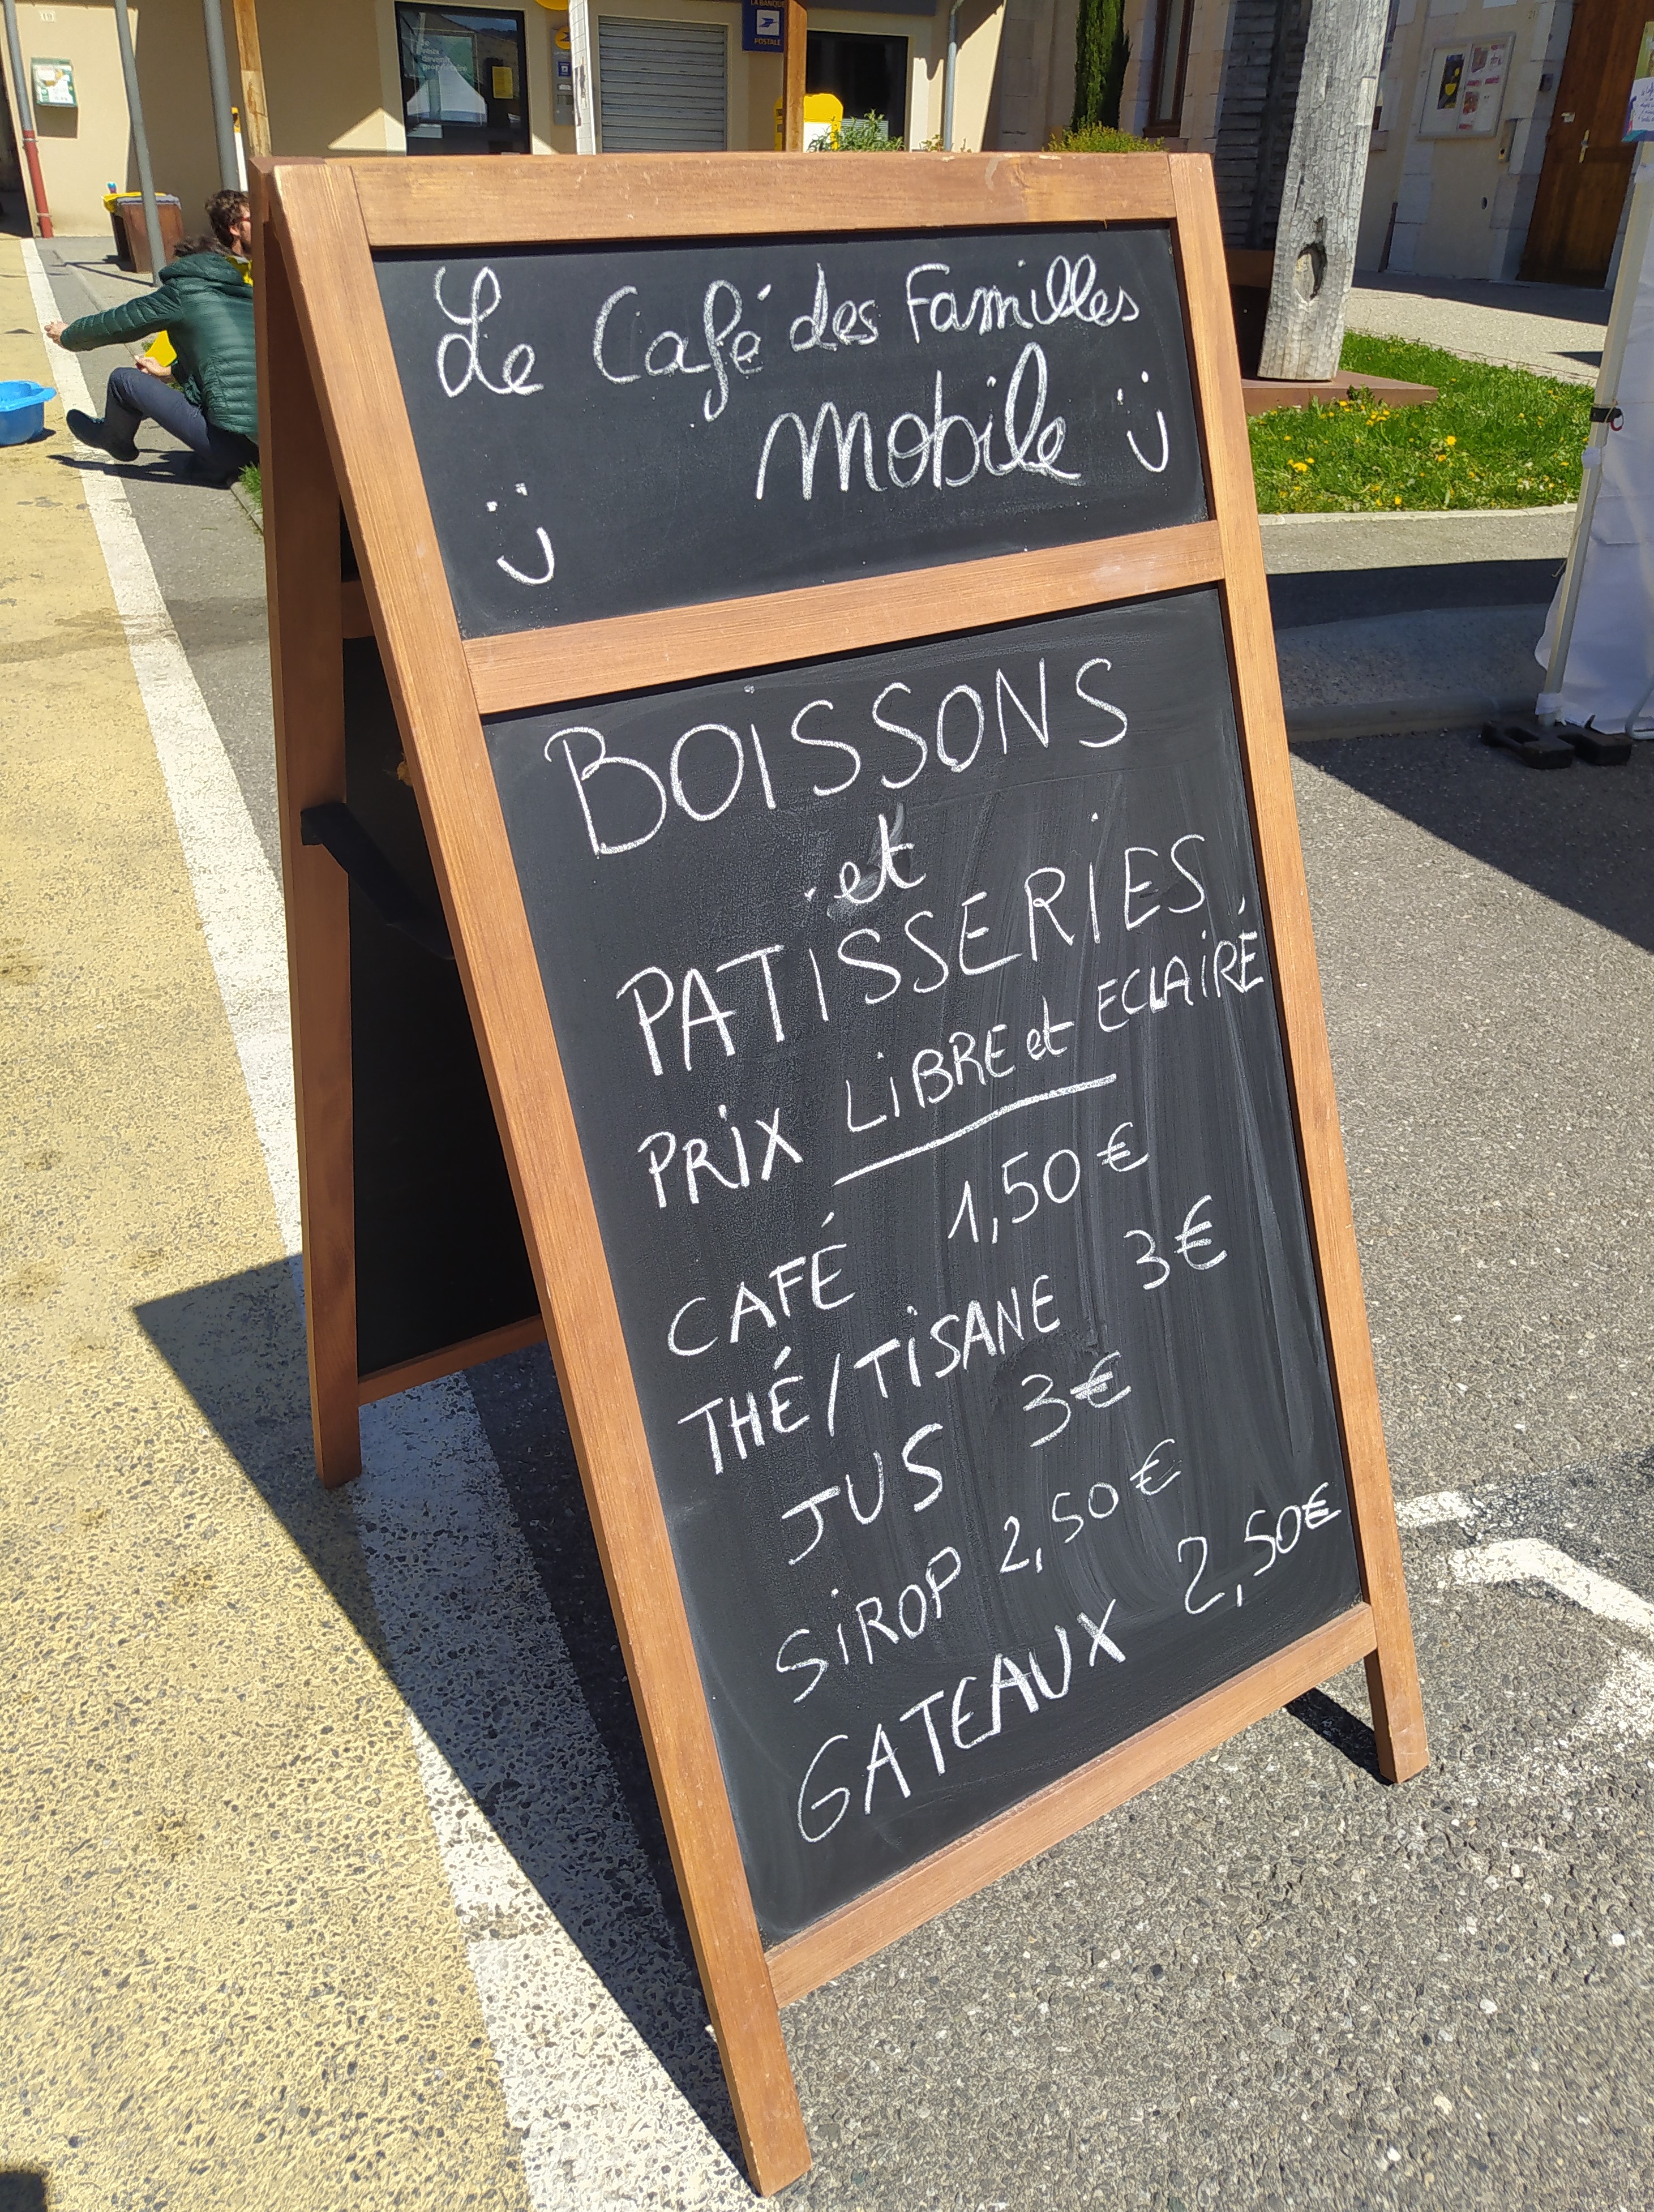 LA BANQUE
POSTALE
Le Café des Familles
mobile :)
:)
BOISSONS
et
PATISSERIES
PRIX LIBRE et ECLAIRÉ
CAFÉ 1,50 €
THÉ/TISANE 3€
JUS 3€
SIROP 2,50 €
GATEAUX 2,50€